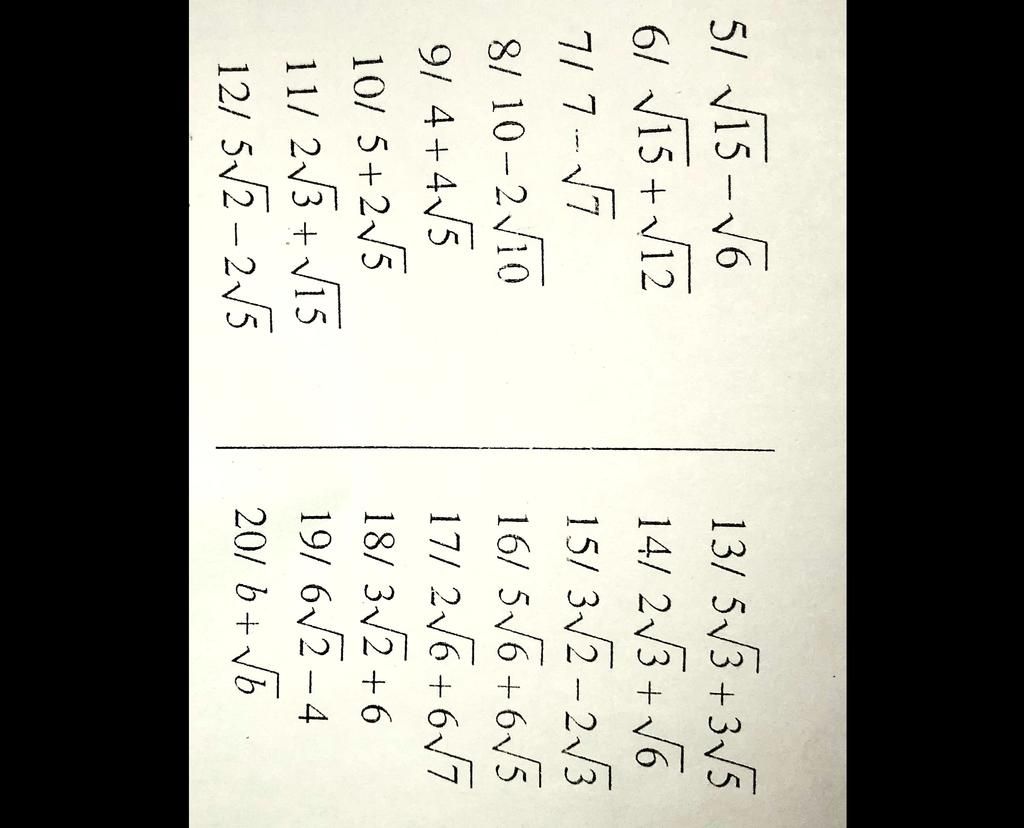 5/ √15 − √6
6/ √15 + √12
7/ 7 − √7
8/ 10 − 2√10
9/ 4 + 4√5
10/ 5 + 2√5
11/ 2√3 + √15
12/ 5√2 − 2√5
13/ 5√3 + 3√5
14/ 2√3 + √6
15/ 3√2 − 2√3
16/ 5√6 + 6√5
17/ 2√6 + 6√7
18/ 3√2 + 6
19/ 6√2 − 4
20/ b + √b